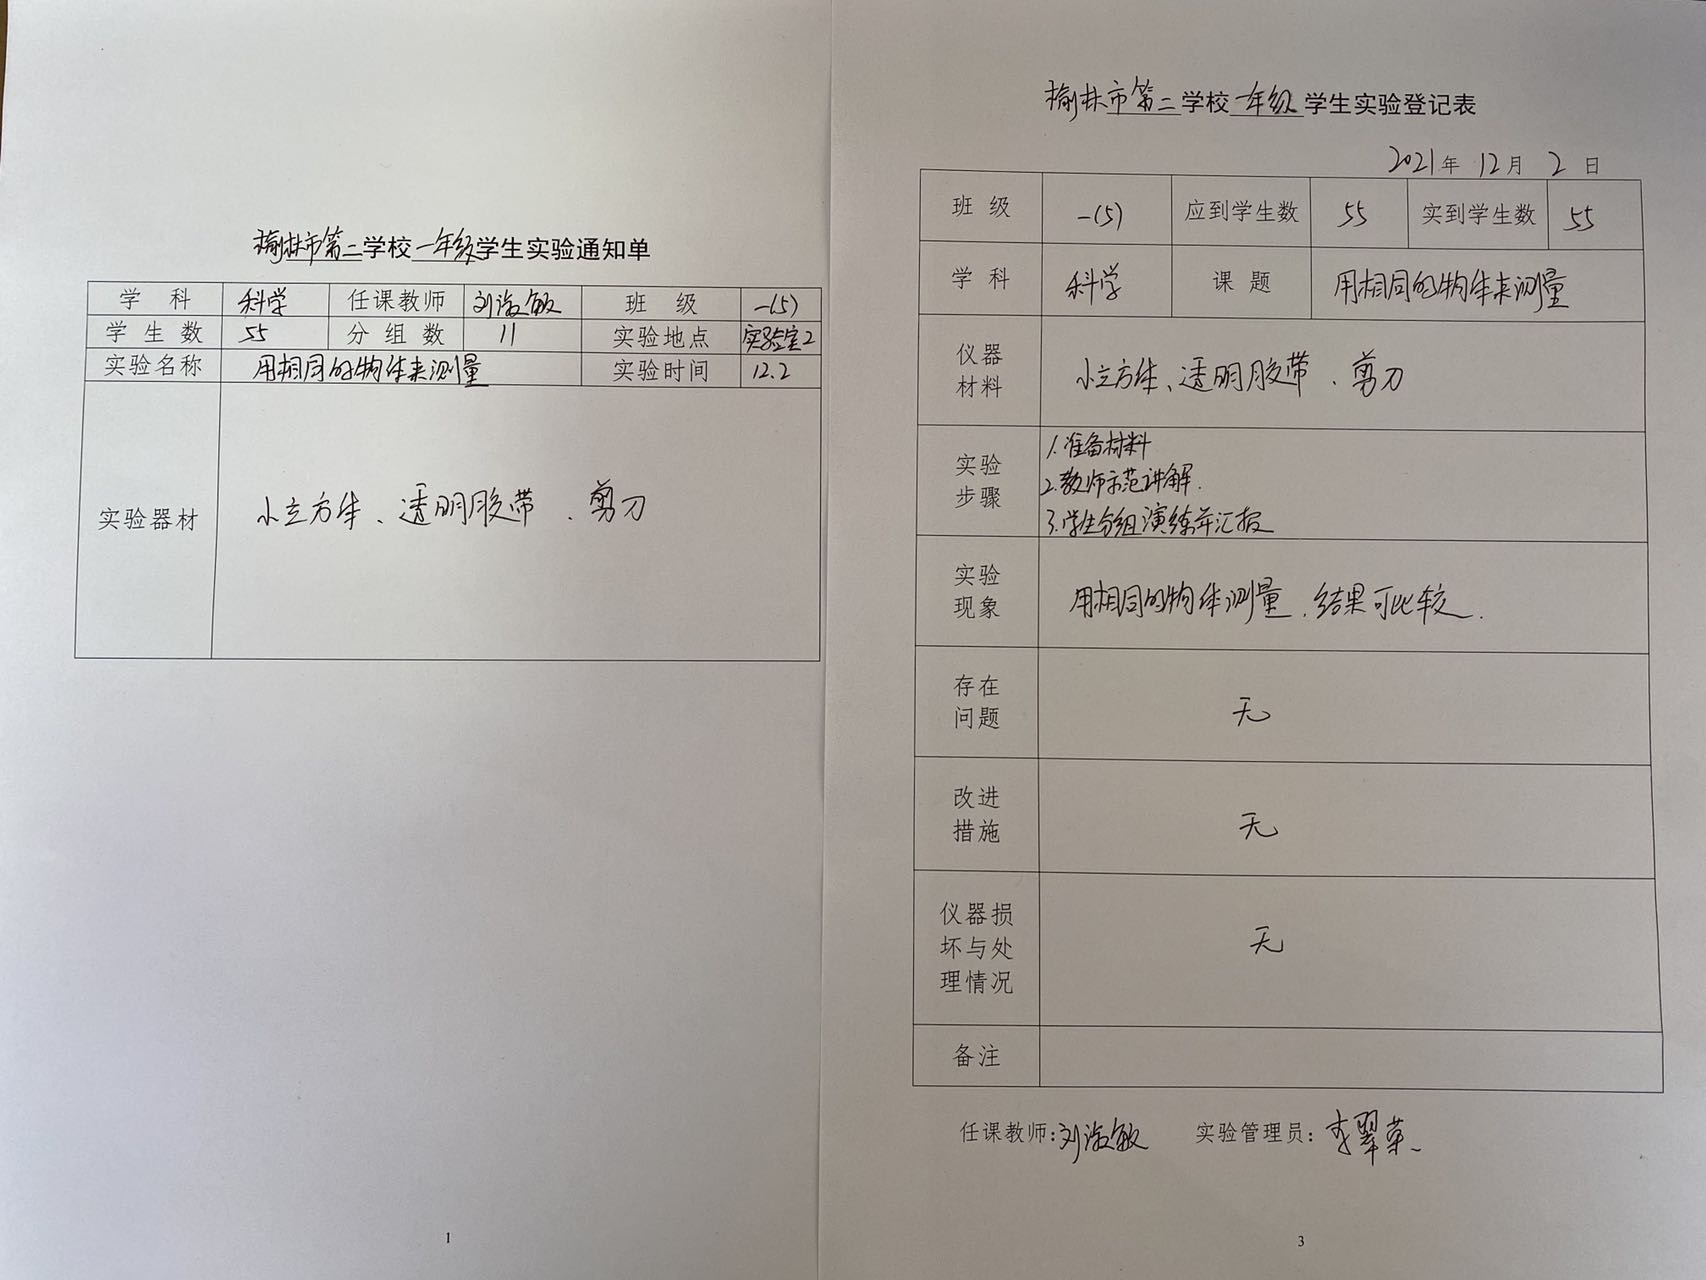 榆林市第二学校一年级学生实验通知单
学 科 科学 任课教师 刘海敏 班 级 一(5)
学生数 55 分组数 11 实验地点 实验室2
实验名称 用相同的物体来测量 实验时间 12.2
实验器材 小立方体、透明胶带、剪刀
1
榆林市第二学校一年级学生实验登记表
2021年 12月 2日
班 级 一(5) 应到学生数 55 实到学生数 55
学 科 科学 课 题 用相同的物体来测量
仪器
材料
小立方体、透明胶带、剪刀
实验
步骤
1.准备材料
2.教师示范讲解.
3.学生分组演练并汇报
实验
现象
用相同的物体测量,结果可比较.
存在
问题
无
改进
措施
无
仪器损
坏与处
理情况
无
备注
任课教师:刘海敏 实验管理员:李翠荣
3